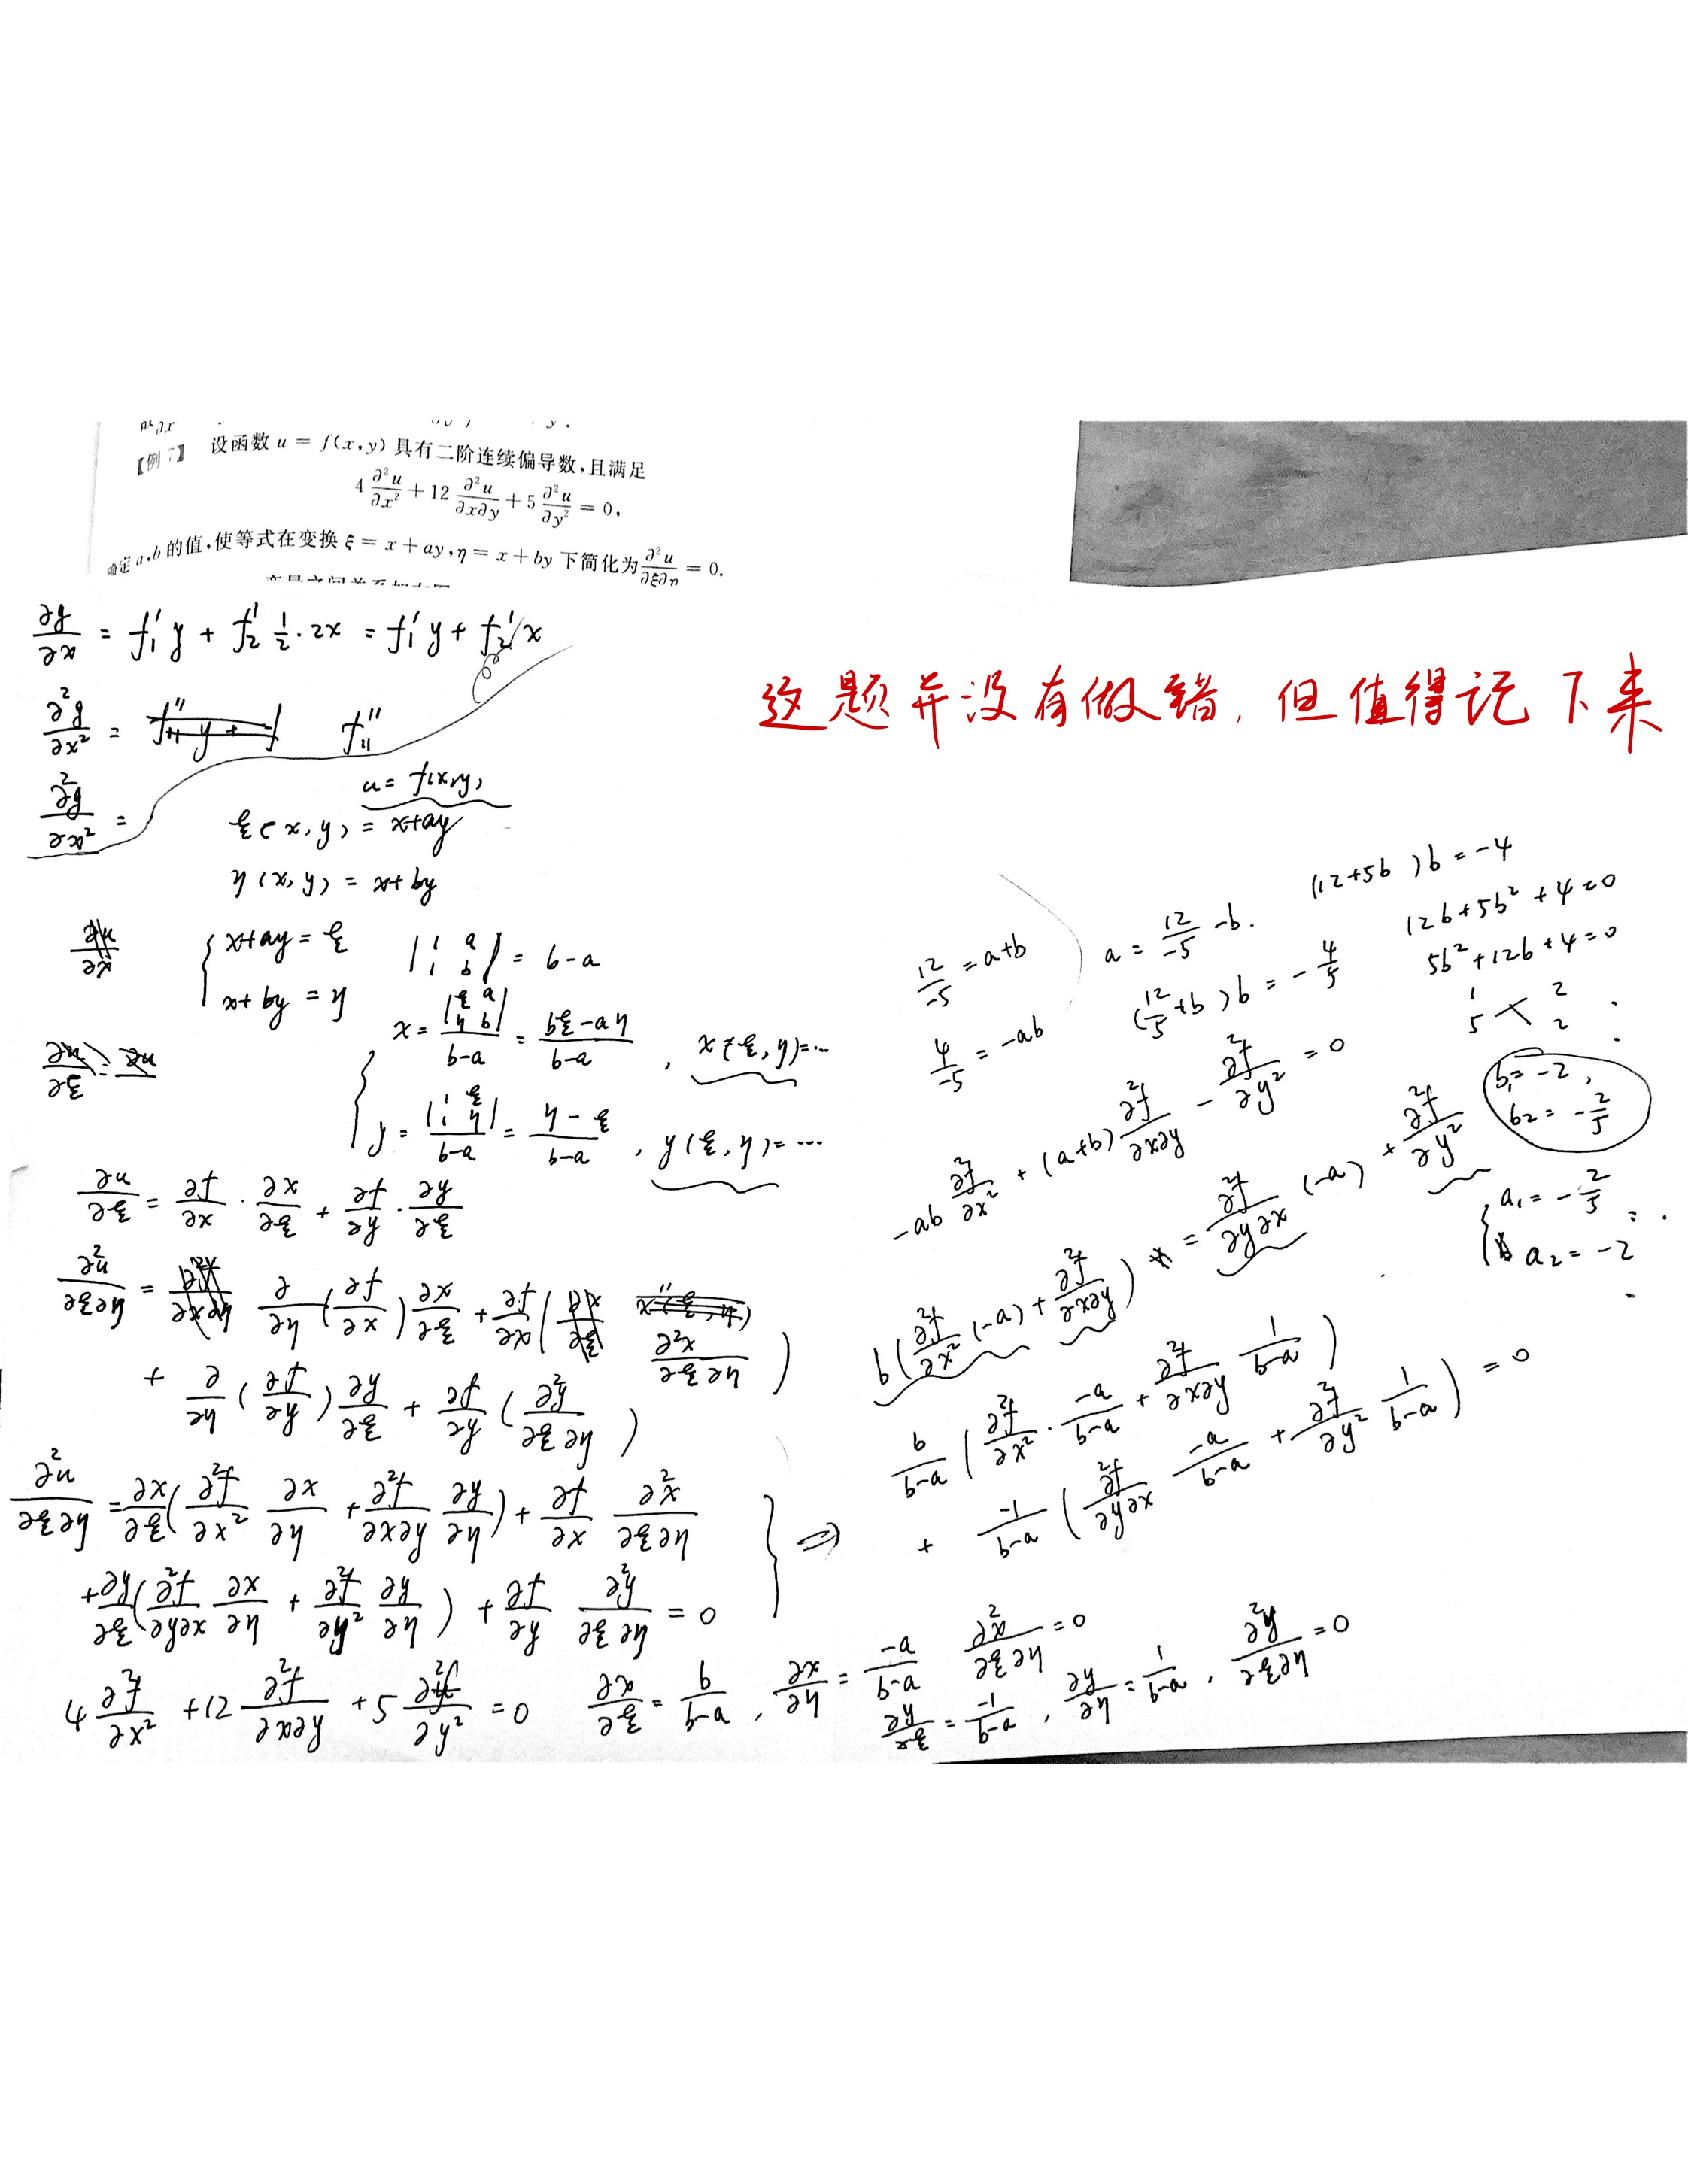 【例7】 设函数 u = f(x,y) 具有二阶连续偏导数,且满足
4 ∂²u/∂x² + 12 ∂²u/∂x∂y + 5 ∂²u/∂y² = 0,
确定 a,b 的值,使等式在变换 ξ = x + ay, η = x + by 下简化为 ∂²u/∂ξ∂η = 0.
∂g/∂x = f₁′ y + f₂′ 1/2 · 2x = f₁′ y + f₂′ x
∂²g/∂x² = f₁₁″
∂²g/∂x² =
这题并没有做错, 但值得记下来
u = f(x,y)
ξ(x,y) = x+ay
η(x,y) = x+by
{ x+ay = ξ
x+by = η
|1 a; 1 b| = b-a
x = |ξ a; η b| / (b-a) = (bξ-aη)/(b-a) , x(ξ,η)=…
y = |1 ξ; 1 η| / (b-a) = (η-ξ)/(b-a) , y(ξ,η)=…
∂u/∂ξ = ∂f/∂x · ∂x/∂ξ + ∂f/∂y · ∂y/∂ξ
∂²u/∂ξ∂η = ∂/∂η (∂f/∂x) ∂x/∂ξ + ∂f/∂x ( ∂²x/∂ξ∂η )
+ ∂/∂η (∂f/∂y) ∂y/∂ξ + ∂f/∂y ( ∂²y/∂ξ∂η )
∂²u/∂ξ∂η = ∂x/∂ξ ( ∂²f/∂x² ∂x/∂η + ∂²f/∂x∂y ∂y/∂η ) + ∂f/∂x ∂²x/∂ξ∂η
+ ∂y/∂ξ ( ∂²f/∂y∂x ∂x/∂η + ∂²f/∂y² ∂y/∂η ) + ∂f/∂y ∂²y/∂ξ∂η = 0 } ⇒
4 ∂²f/∂x² + 12 ∂²f/∂x∂y + 5 ∂²f/∂y² = 0
∂x/∂ξ = b/(b-a) , ∂x/∂η = -a/(b-a) ∂²x/∂ξ∂η = 0
∂y/∂ξ = -1/(b-a) , ∂y/∂η = 1/(b-a) , ∂²y/∂ξ∂η = 0
b/(b-a) ( ∂²f/∂x² · -a/(b-a) + ∂²f/∂x∂y 1/(b-a) )
+ -1/(b-a) ( ∂²f/∂y∂x -a/(b-a) + ∂²f/∂y² 1/(b-a) ) = 0
b ( ∂²f/∂x² (-a) + ∂²f/∂x∂y ) = ∂²f/∂y∂x (-a) + ∂²f/∂y²
-ab ∂²f/∂x² + (a+b) ∂²f/∂x∂y - ∂²f/∂y² = 0
12/-5 = a+b
4/-5 = -ab
a = 12/-5 - b.
(12/5 + b) b = -4/5
(12+5b) b = -4
12b + 5b² + 4 = 0
5b² + 12b + 4 = 0
1 2
5 2
b₁ = -2,
b₂ = -2/5
{ a₁ = -2/5
a₂ = -2